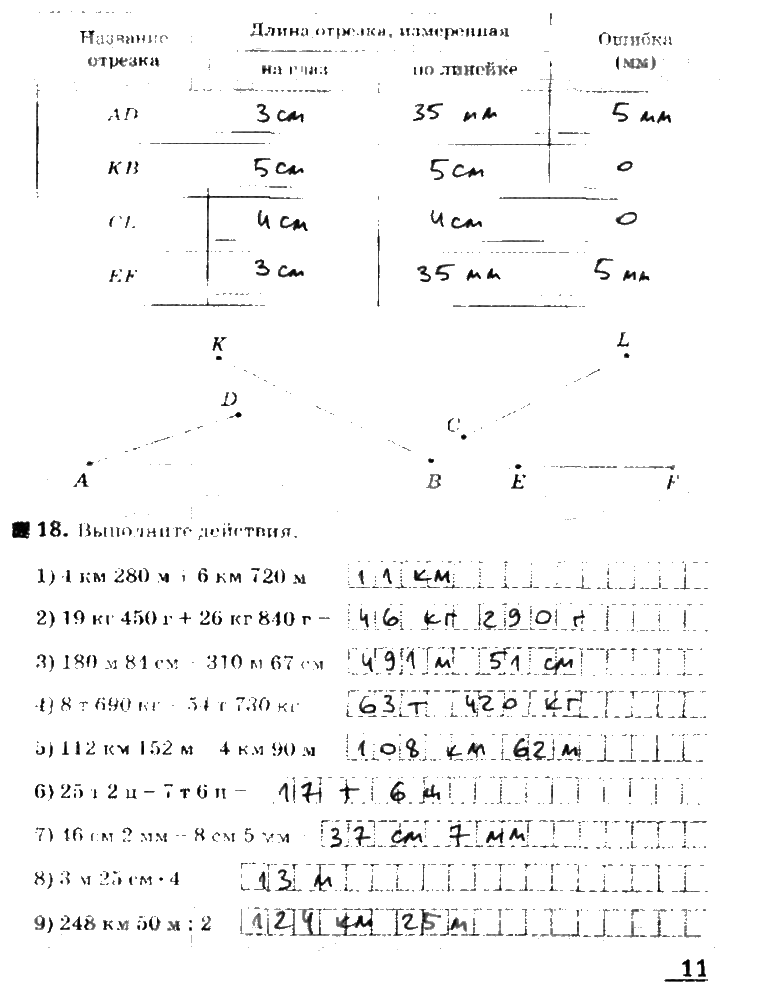 Название отрезка
Длина отрезка, измеренная
на глаз
по линейке
Ошибка (мм)
AD 3 см 35 мм 5 мм
KB 5 см 5 см 0
CL 4 см 4 см 0
EF 3 см 35 мм 5 мм
K
L
D
C
A
B
E
F
18. Выполните действия.
1) 4 км 280 м + 6 км 720 м 11 км
2) 19 кг 450 г + 26 кг 840 г = 46 кг 290 г
3) 180 м 84 см 310 м 67 см 491 м 51 см
4) 8 т 690 кг 54 т 730 кг 63 т 420 кг
5) 112 км 152 м 4 км 90 м 108 км 62 м
6) 25 т 2 ц – 7 т 6 ц = 17 т 6 ц
7) 46 см 2 мм – 8 см 5 мм 37 см 7 мм
8) 3 м 25 см · 4 13 м
9) 248 км 50 м : 2 124 км 25 м
11